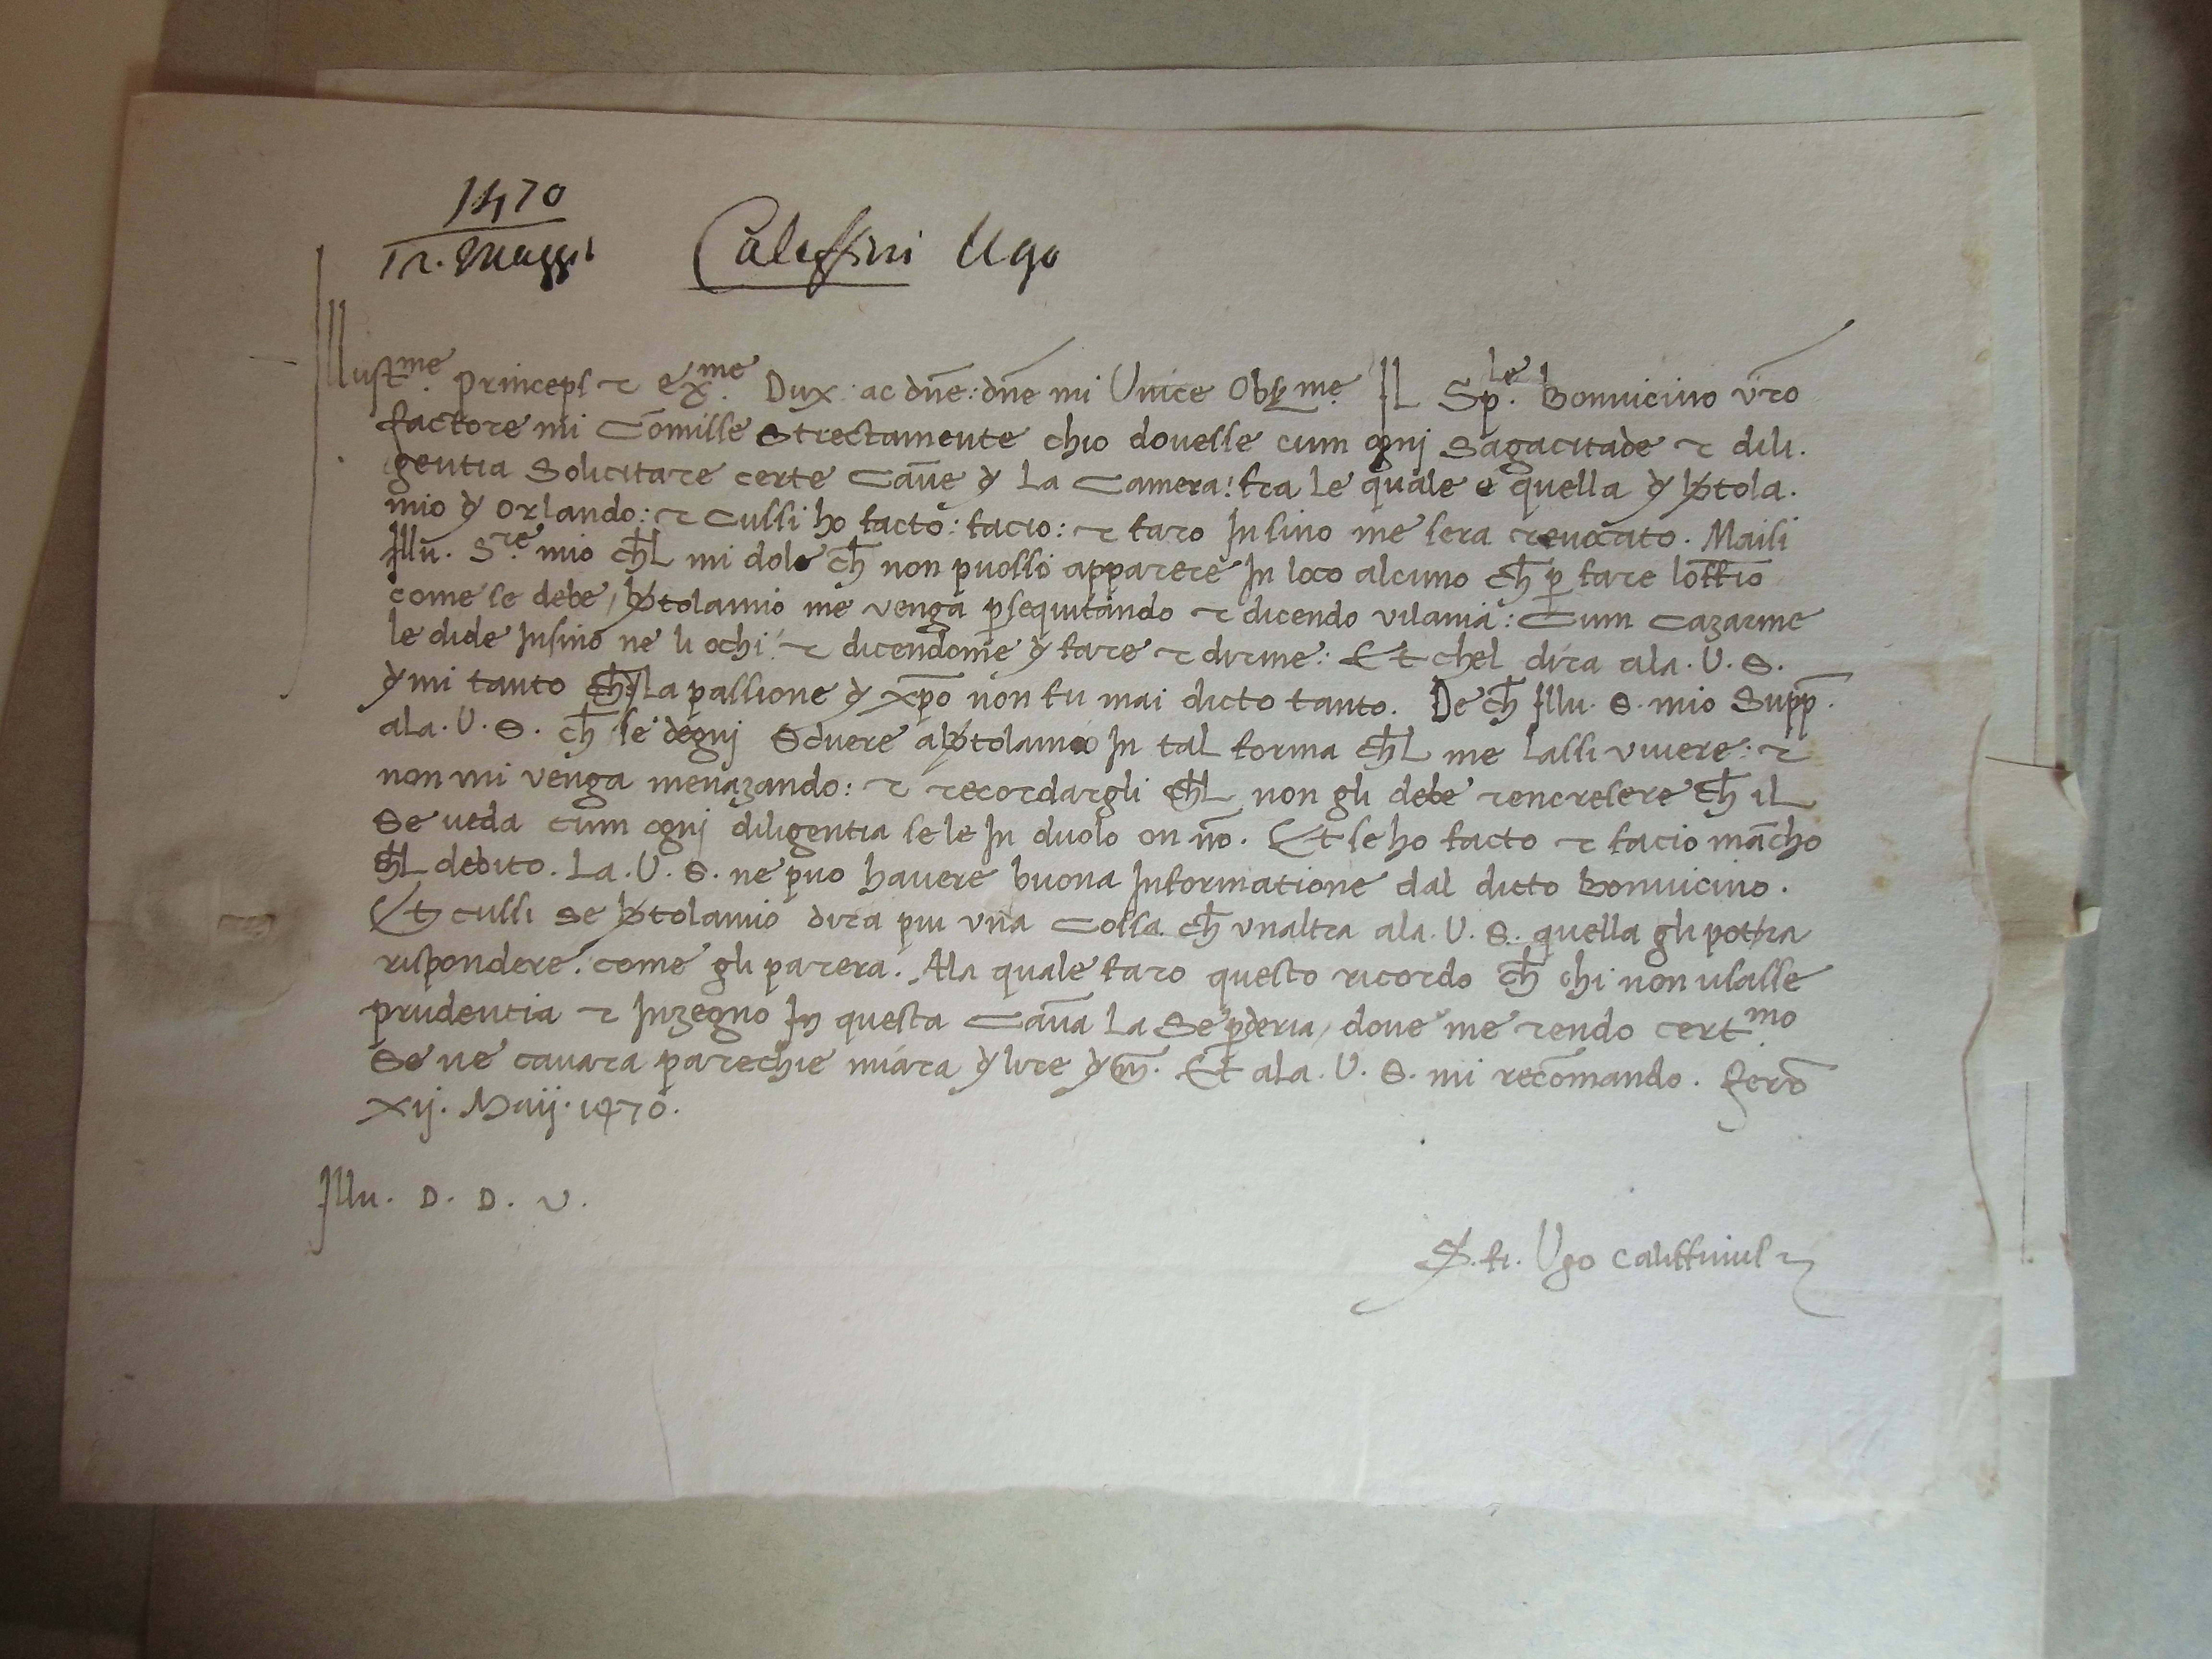 1470
12. Maggio
Caleffini Ugo
Illust.me princeps et ex.me Dux ac dn̄e: dn̄e mi Unice Obs.me Il Sp.le Bonvicino vr̄o
factore mi Com̄isse strectamente chio dovesse cum ogni Sagacitade et dili.
gentia Solicitare certe Cau̅e de La Camera: fra le quale e quella de b̶tola.
mio de Orlando: et cussi ho facto: facio: et faro In sino me sera revocato. Maisi
Illu. S.re mio ch̄L mi dole ch̄ non puossi apparere In loco alcuno ch̄ p̱ fare loffi̅o
come se debe, b̶tolamio me venga p̱sequitando et dicendo vilania: Cum cazarme
le dide Insino ne li ochi: et dicendome de fare et dirme: Et chel dira ala. V. S.
de mi tanto ch̄ La passione de xp̄o non fu mai dicto tanto. De ch̄ Illu. S. mio Supp̄.
ala. V. S. ch̄ se degni Sc̅vere a b̶tolamio In tal forma ch̄L me lassi vivere: et
non mi venga menazando: et recordargli ch̄L non gli debe rencresere ch̄ iL
Se veda cum ogni diligentia se le In duolo on nō. Et se ho facto et facio mācho
ch̄L debito. La. V. S. ne puo havere buona Informatione dal dicto Bonvicino.
Et cussi se b̶tolamio dira piu una Cossa ch̄ unaltra ala. V. S. quella gli potra
rispondere. come gli parera. Ala quale faro questo ricordo ch̄ chi non usasse
prudentia et Inzegno In questa Cau̅a La Se p̱deria, dove me rendo cert.mo
Se ne cavara parechie miara de lire de m̄. Et ala. V. S. mi recōmando. ferr̄o
xij. Maij. 1470.
Illu. D. D. V.
S. fi. Ugo Califfinus